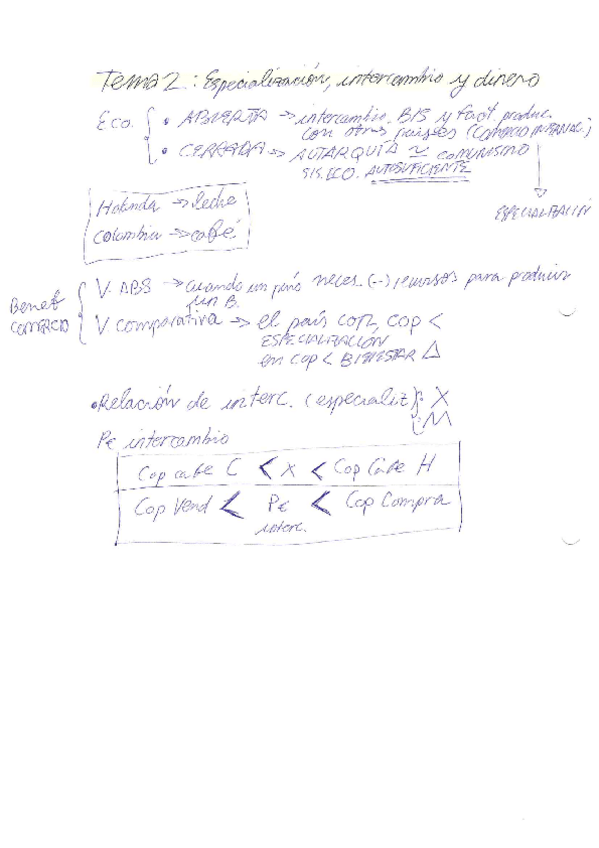 Tema 2.: Especialización, intercambio y dinero
Eco.
• ABIERTA → intercambio BIS y fact. produc.
con otros países (COMERCIO INTERNAC.)
• CERRADA → AUTARQUÍA ≃ COMUNISMO
SIS. ECO. AUTOSUFICIENTE
ESPECIALIZACIÓN
Holanda → leche
Colombia → café
Benef
COMERCIO
V. ABS → Cuando un país neces. (-) recursos para producir
un B.
V comparativa → el país con COP <
ESPECIALIZACIÓN
en COP < BIENESTAR Δ
• Relación de interc. (especializ): X
M
Pe intercambio
Cop cafe C < X < Cop Cafe H
Cop Vend < Pe < Cop Compra
interc.